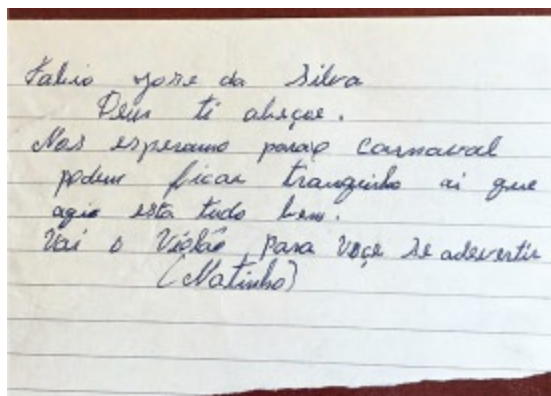 Fabio Jose da Silva
Deus ti abeçoe.
Nos esperamo para o Carnaval
podem ficar tranquinho ai que
aqui esta tudo bem.
Vai o Violão para voçe se adevertir
(Natinho)